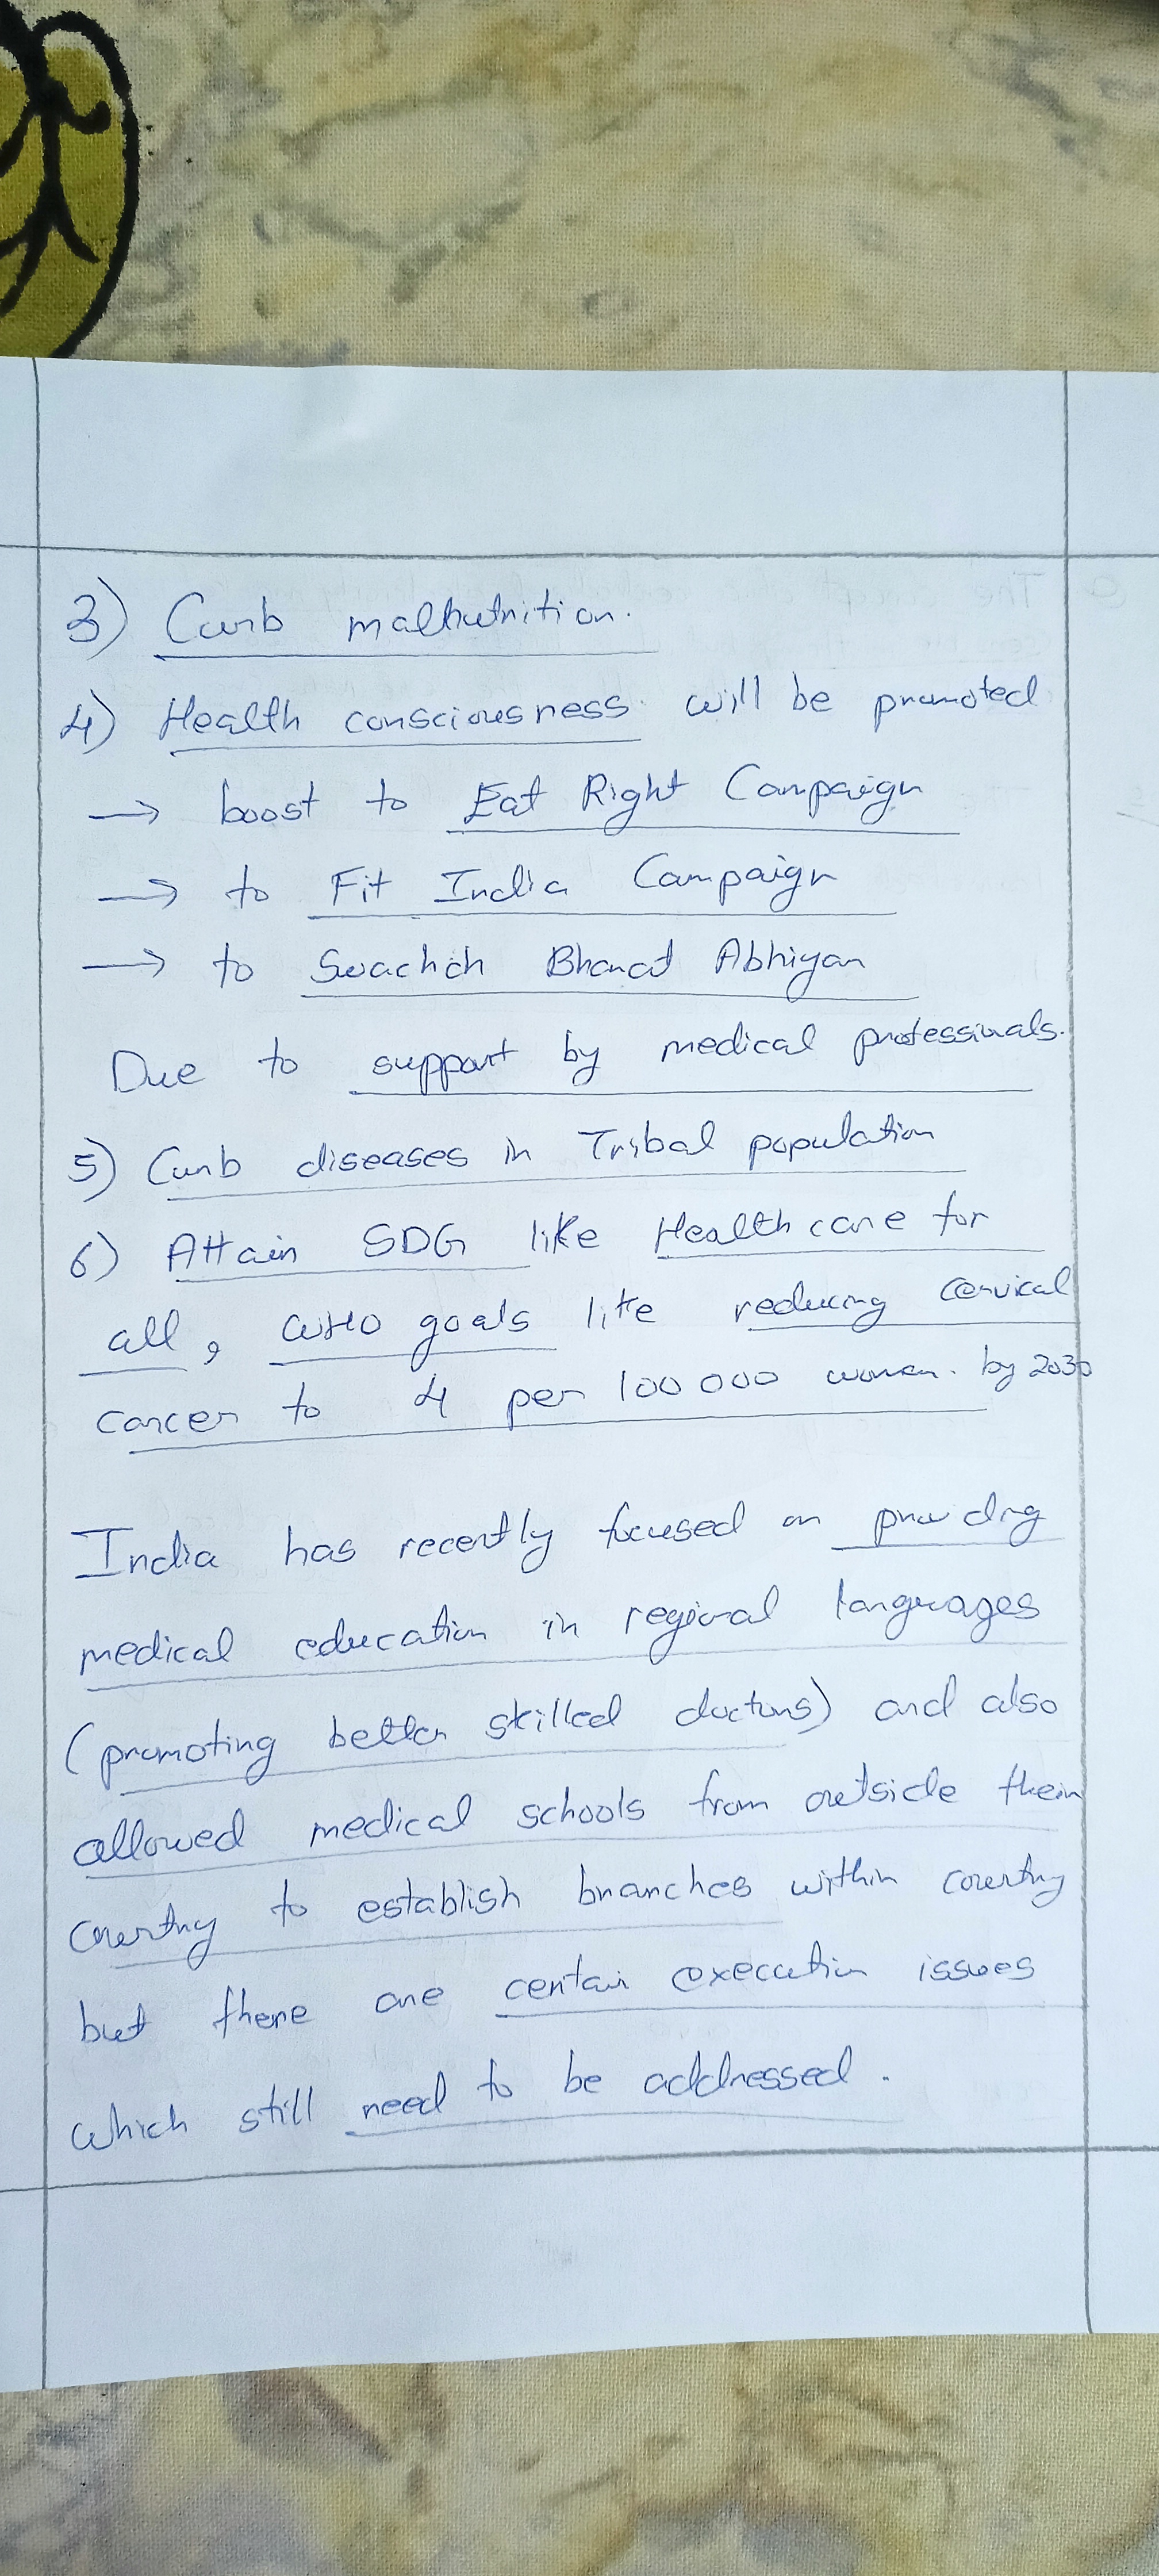 3) Curb malnutrition.
4) Health consciousness will be promoted
→ boost to Eat Right Campaign
→ to Fit India Campaign
→ to Swachch Bharat Abhiyan
Due to support by medical professinals.
5) Curb diseases in Tribal population
6) Attain SDG like Healthcare for
all, WHO goals like reducing cervical
cancer to 4 per 100 000 women. by 2030
India has recently focused on providing
medical education in regional languages
(promoting better skilled doctors) and also
allowed medical schools from outside their
country to establish branches within country
but there are certain execution issues
which still need to be addressed.